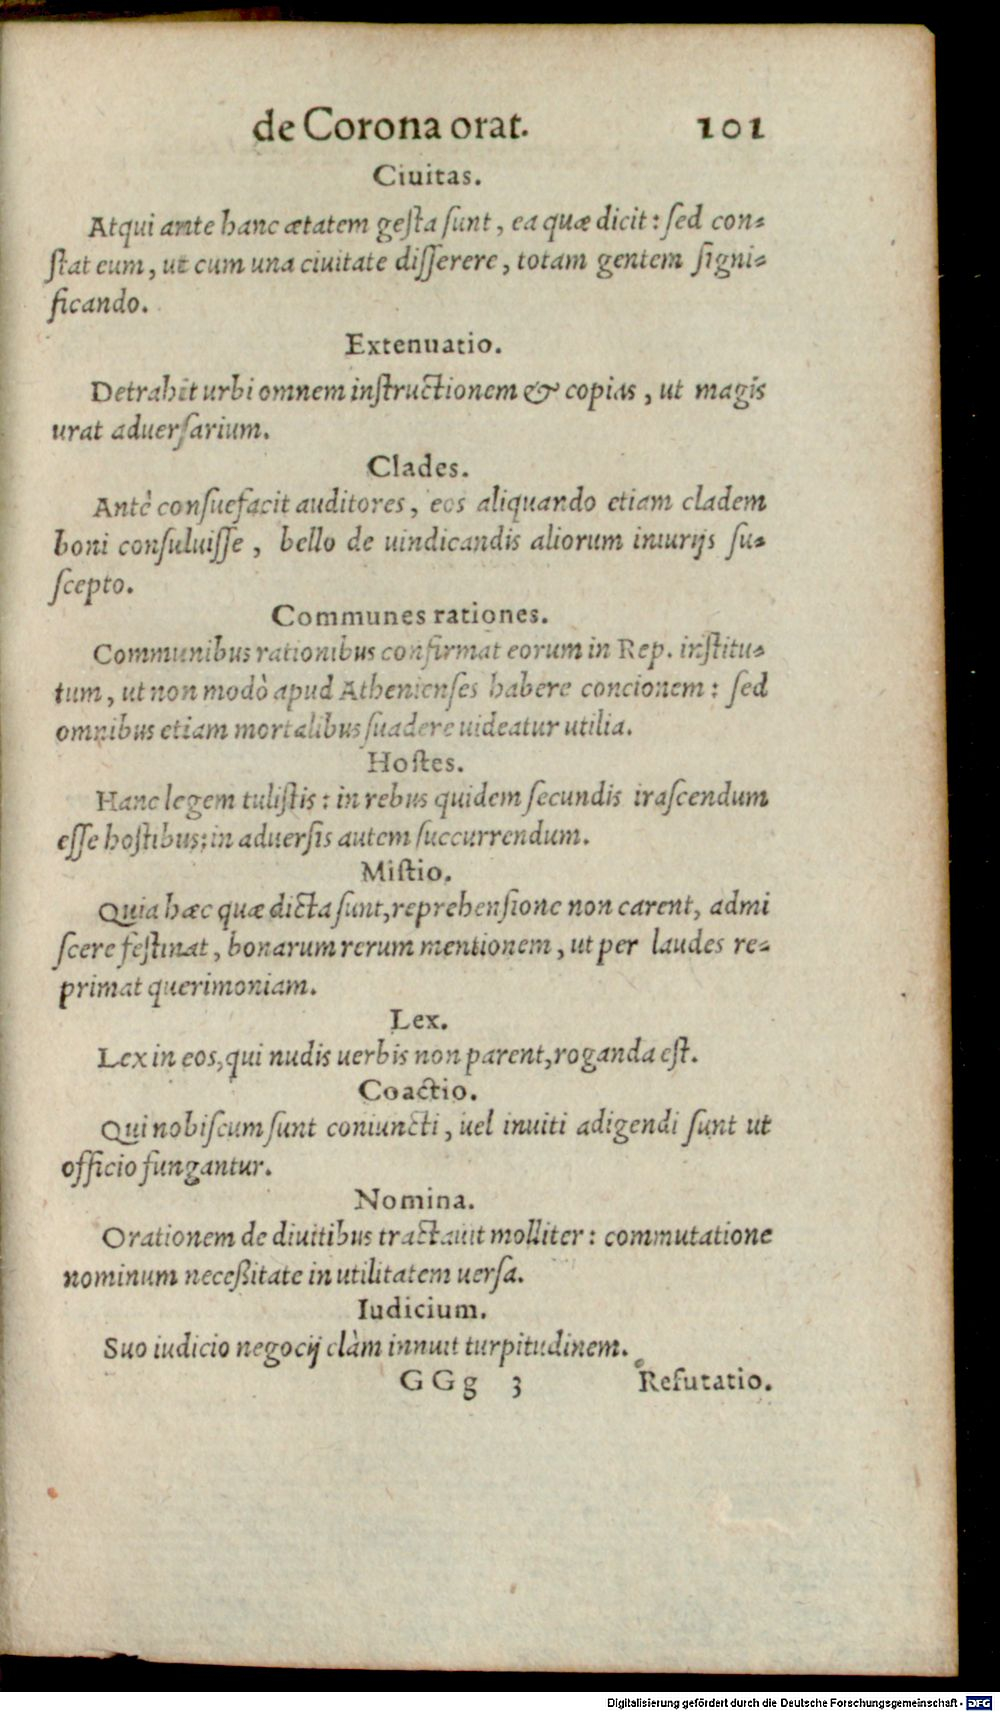 de Corona orat. 101
Ciuitas.
Atqui ante hanc ætatem gesta sunt, ea quæ dicit: sed con-
stat eum, ut cum una ciuitate disserere, totam gentem signi-
ficando.
Extenuatio.
Detrahit urbi omnem instructionem & copias, ut magis
urat aduersarium.
Clades.
Antè consuefacit auditores, eos aliquando etiam cladem
boni consuluisse, bello de uindicandis aliorum iniurijs su-
scepto.
Communes rationes.
Communibus rationibus confirmat eorum in Rep. institu-
tum, ut non modò apud Athenienses habere concionem: sed
omnibus etiam mortalibus suadere uideatur utilia.
Hostes.
Hanc legem tulistis: in rebus quidem secundis irascendum
esse hostibus; in aduersis autem succurrendum.
Mistio.
Quia hæc quæ dicta sunt, reprehensione non carent, admi
scere festinat, bonarum rerum mentionem, ut per laudes re-
primat querimoniam.
Lex.
Lex in eos, qui nudis uerbis non parent, roganda est.
Coactio.
Qui nobiscum sunt coniuncti, uel inuiti adigendi sunt ut
officio fungantur.
Nomina.
Orationem de diuitibus tractauit molliter: commutatione
nominum neceßitate in utilitatem uersa.
Iudicium.
Suo iudicio negocij clàm innuit turpitudinem.
GGg 3 Refutatio.
Digitalisierung gefördert durch die Deutsche Forschungsgemeinschaft - DFG